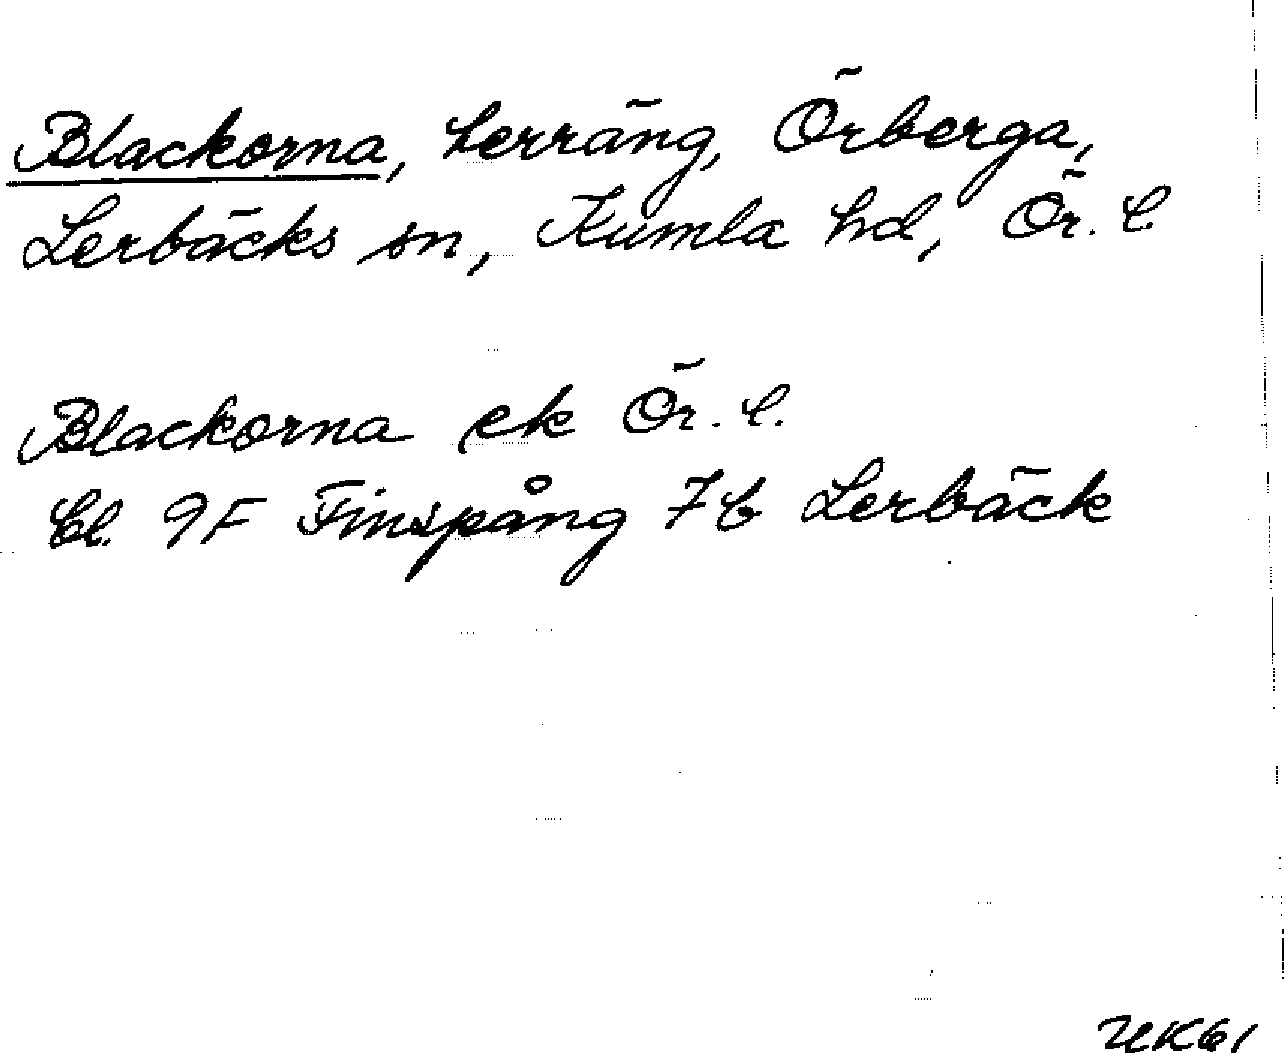 Blackorna, terräng, Örberga,
Lerbäcks sn, Kumla hd, Ör. l
Blackorna ek Ör. l.
Bl. 9F Finspång 7b Lerbäck
UK61